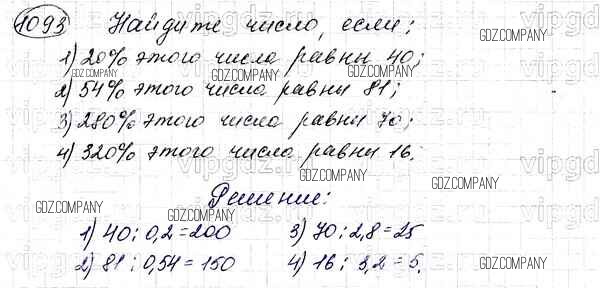 1093 Найдите число, если:
1) 20% этого числа равны 40;
2) 54% этого числа равны 81;
3) 280% этого числа равны 70;
4) 320% этого числа равны 16.
Решение:
1) 40 : 0,2 = 200
2) 81 : 0,54 = 150
3) 70 : 2,8 = 25
4) 16 : 3,2 = 5.
GDZ.COMPANY
GDZ.COMPANY
GDZ.COMPANY
GDZ.COMPANY
GDZ.COMPANY
GDZ.COMPANY
GDZ.COMPANY
GDZ.COMPANY
GDZ.COMPANY